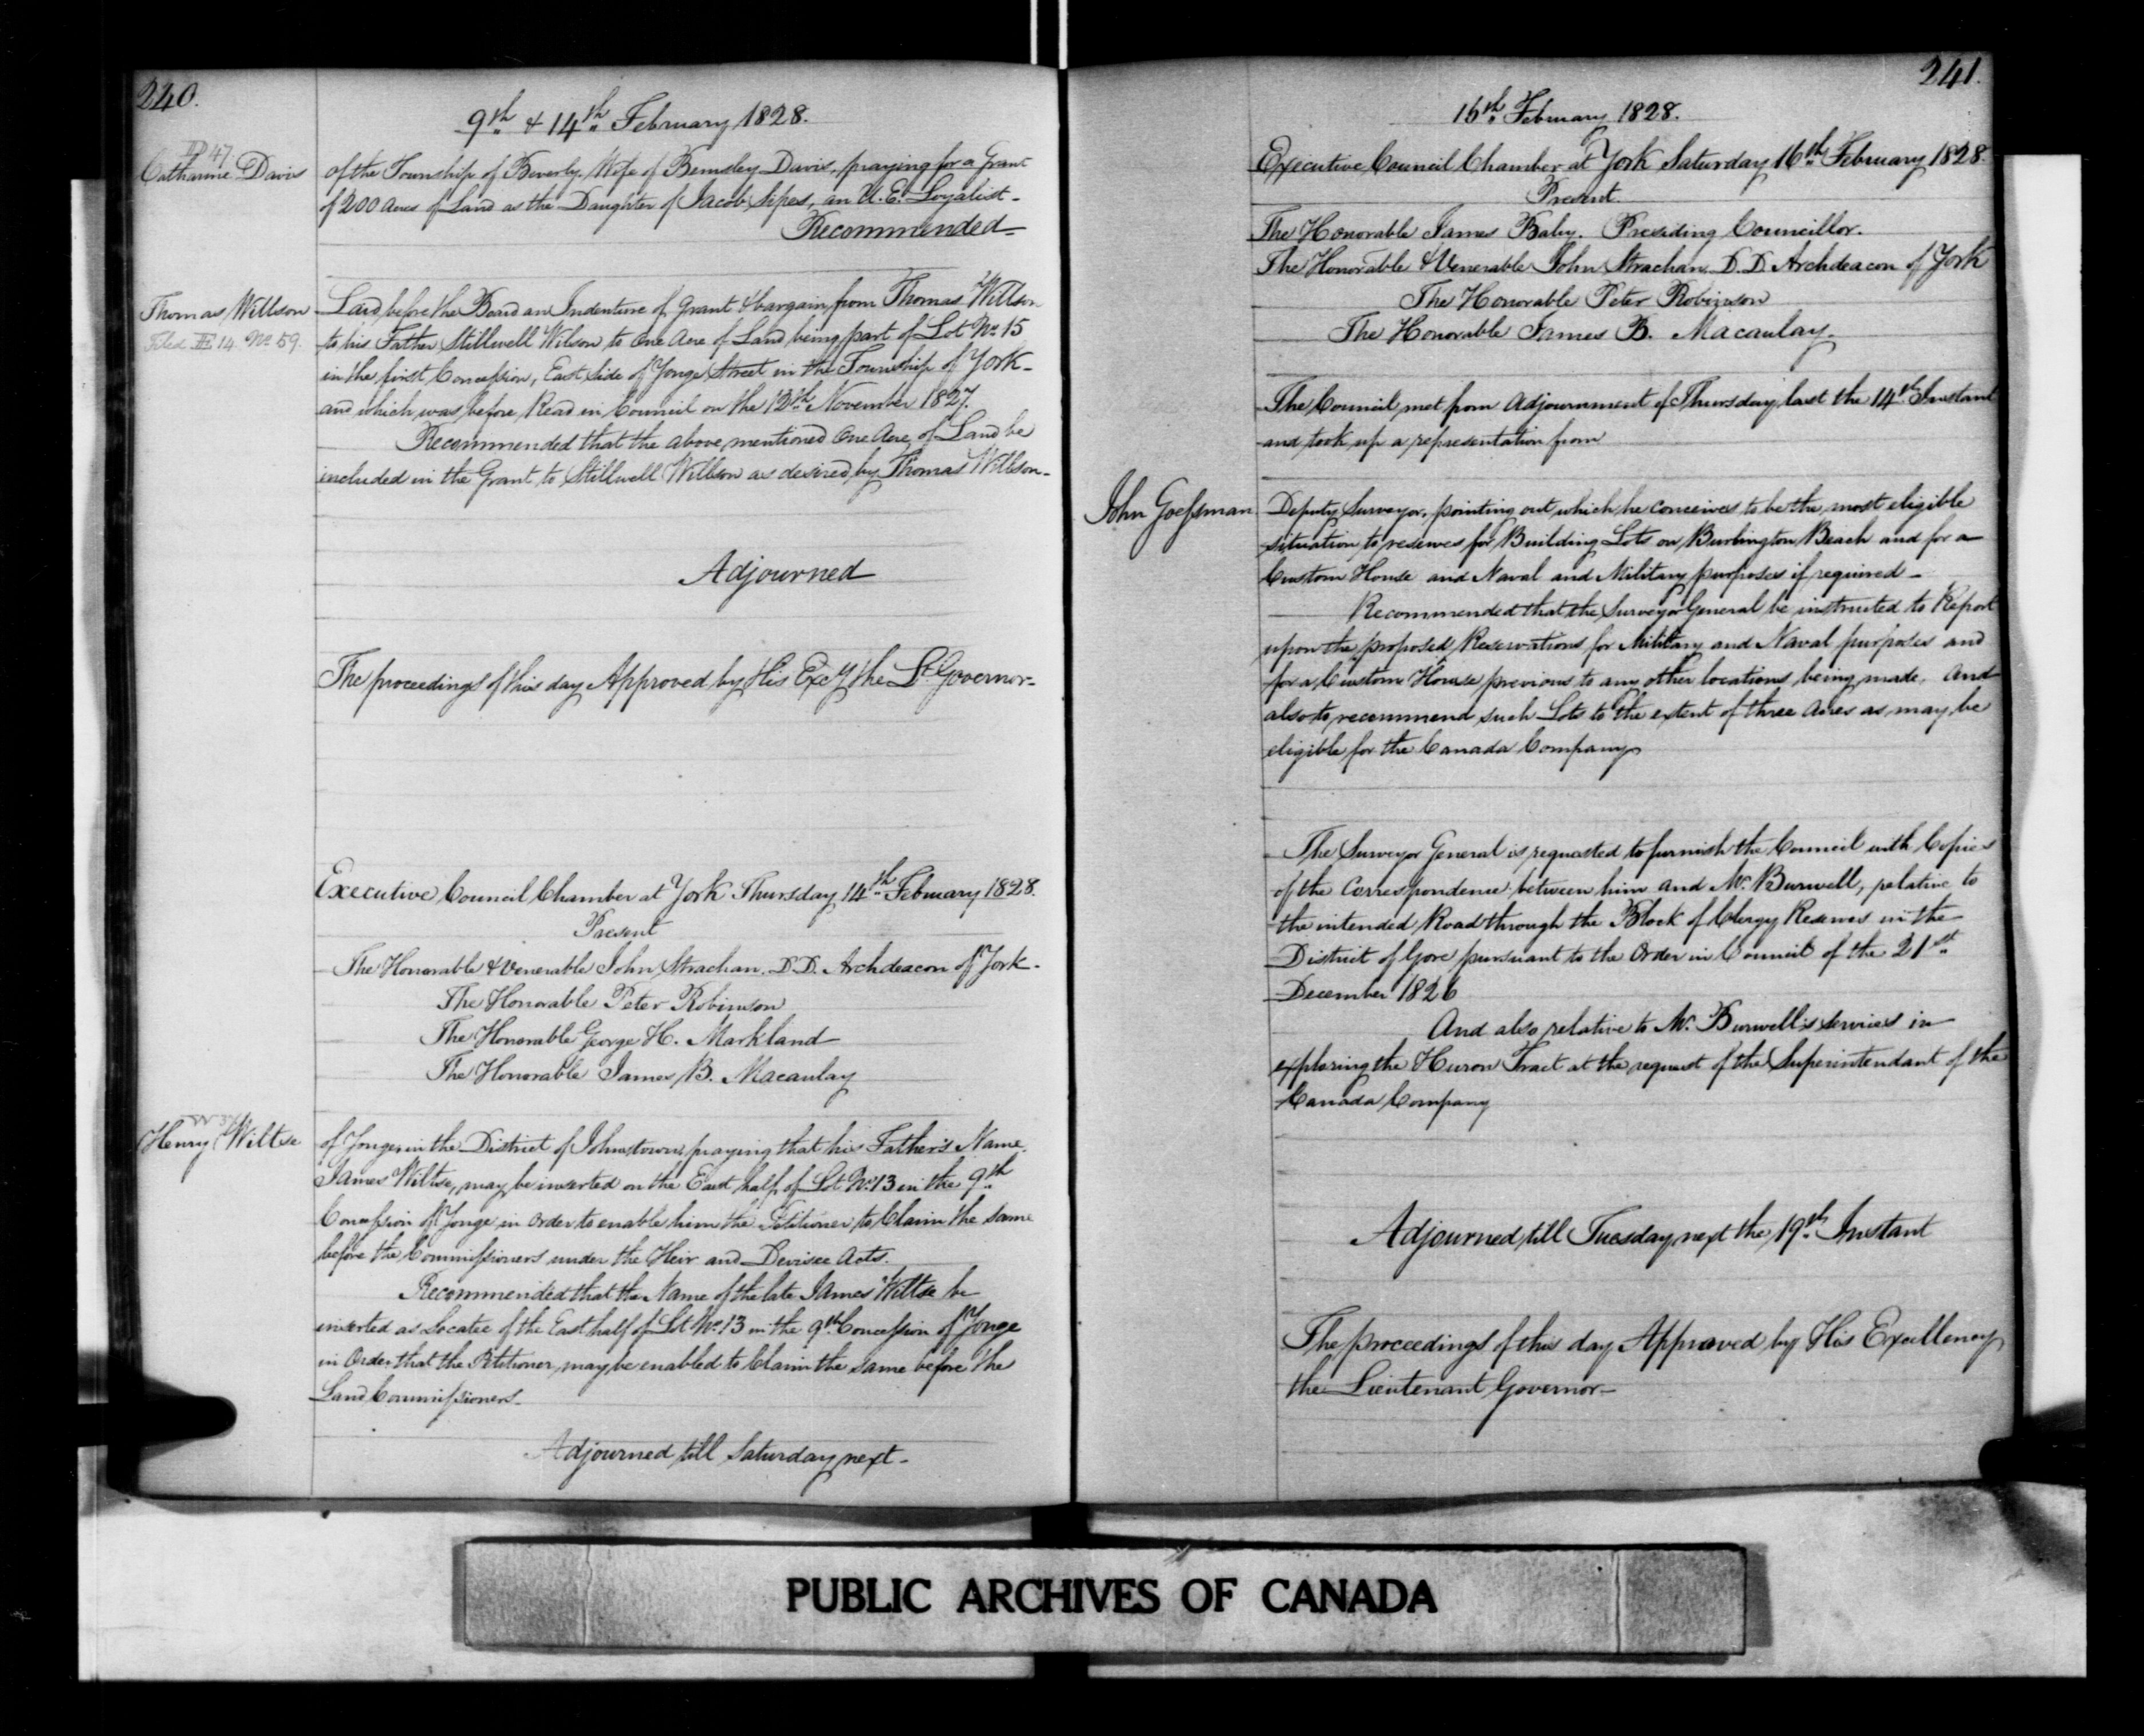 240.
9th & 14th February 1828.
D 47
Catharine Davis
of the Township of Beverly, Wife of Bemsley Davis, praying for a Grant
of 200 Acres of Land as the Daughter of Jacob Sipes, an U.E. Loyalist -
Recommended -
Thomas Willson
Filed 14 No 59.
Laid before the Board an Indenture of Grant & bargain from Thomas Willson
to his Father Stillwell Wilson to One Acre of Land being part of Lot No 15
in the first Concession, East Side of Yonge Street in the Township of York -
and which was before Read in Council on the 12th November 1827.
Recommended that the above mentioned One Acre of Land be
included in the Grant to Stillwell Willson as desired by Thomas Willson -
Adjourned
The proceedings of this day Approved by His Excy the Lt. Governor -
Executive Council Chamber at York Thursday 14th February 1828.
Present
The Honorable & Venerable John Strachan. D.D. Archdeacon of York -
The Honorable Peter Robinson
The Honorable George H. Markland
The Honorable James B. Macaulay
Henry Wiltse
of Yonge in the District of Johnstown, praying that his Father's Name
James Wiltse, may be inserted on the East half of Lot No 13 in the 9th
Concession of Yonge in order to enable him the Petitioner to Claim the same
before the Commissioners under the Heir and Devisee Acts.
Recommended that the Name of the late James Wiltse be
inserted as Locatee of the East half of Lot No 13 in the 9th Concession of Yonge
in Order that the Petitioner may be enabled to Claim the same before the
Land Commissioners -
Adjourned till Saturday next -
241.
16th February 1828.
Executive Council Chamber at York Saturday 16th February 1828.
Present.
The Honorable James Baby. Presiding Councillor.
The Honorable & Venerable John Strachan. D.D. Archdeacon of York
The Honorable Peter Robinson
The Honorable James B. Macaulay.
The Council met from Adjournment of Thursday last the 14th Instant
and took up a representation from
John Goessman
Deputy Surveyor, pointing out which he conceives to be the most eligible
situation to reserves for Building Lots on Burlington Beach and for a
Custom House and Naval and Military purposes if required -
Recommended that the Surveyor General be instructed to Report
upon the proposed Reservations for Military and Naval purposes and
for a Custom House previous to any other locations being made, And
also to recommend such Lots to the extent of three Acres as may be
eligible for the Canada Company
The Surveyor General is requested to furnish the Council with Copies
of the Correspondence between him and Mr. Burwell, relative to
the intended Road through the Block of Clergy Reserves in the
District of Gore pursuant to the Order in Council of the 21st
December 1826
And also relative to Mr. Burwell's services in
exploring the Huron Tract at the request of the Superintendant of the
Canada Company
Adjourned till Tuesday next the 19th Instant
The proceedings of this day Approved by His Excellency
the Lieutenant Governor -
PUBLIC ARCHIVES OF CANADA